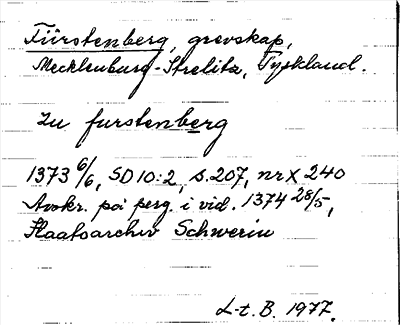 Fürstenberg, grevskap,
Mecklenburg-Strelitz, Tyskland.
zu furstenberg
1373 6/6, SD 10:2, s.207, nr X 240
Avskr. på perg. i vid. 1374 28/5,
Staatsarchiv Schwerin
L-t. B. 1977.